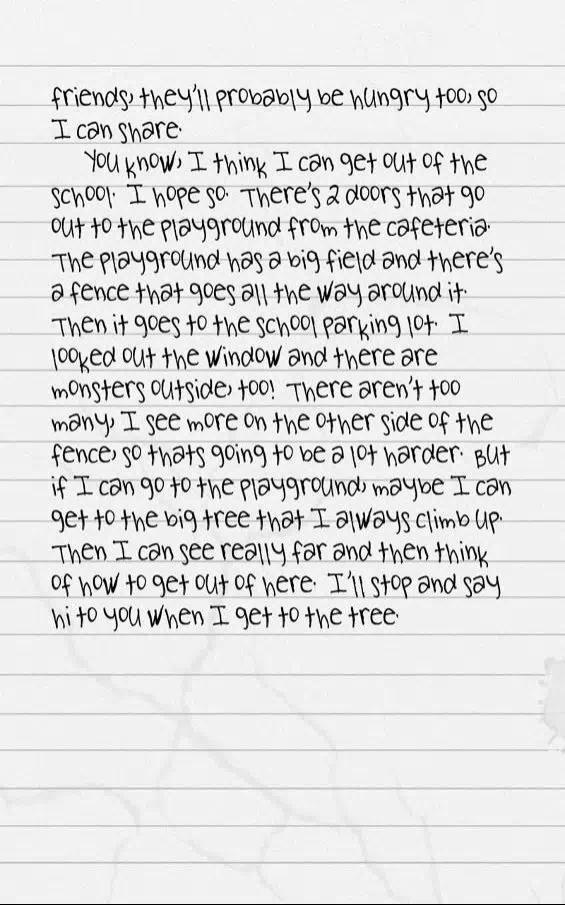 friends, they'll probably be hungry too, so
I can share.
You know, I think I can get out of the
school. I hope so. There's 2 doors that go
out to the playground from the cafeteria.
The playground has a big field and there's
a fence that goes all the way around it.
Then it goes to the school parking lot. I
looked out the window and there are
monsters outside, too! There aren't too
many, I see more on the other side of the
fence, so thats going to be a lot harder. But
if I can go to the playground, maybe I can
get to the big tree that I always climb up.
Then I can see really far and then think
of how to get out of here. I'll stop and say
hi to you when I get to the tree.